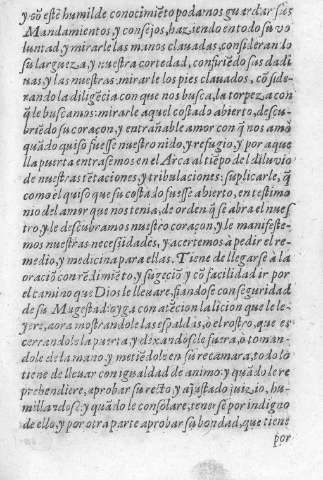 y cõ este humilde conocimiẽto podamos guardar sus
Mandamientos y consejos, haziendo en todo su vo
luntad, y mirarle las manos clauadas, considerando
su largueza, y nuestra cortedad, confiriẽdo sus dadi
uas, y las nuestras: mirarle los pies clauados, cõside-
rando la diligẽcia con que nos busca, la torpeza con
q̃ le buscamos: mirarle aquel costado abierto, descu-
briẽdo su coraçon, y entrañable amor con q̃ nos amò
quãdo quiso fuesse nuestro nido, y refugio, y por aque
lla puerta entrasemos en el Arca al tiẽpo del diluuio
de nuestras tẽtaciones, y tribulaciones: suplicarle, q̃
como el quiso que su costado fuesse abierto, en testimo
nio del amor que nos tenia, de orden q̃ se abra el nuef
tro, y le descubramos nuestro coraçon, y le manifeste-
mos nuestras necessidades, y acertemos à pedir el re-
medio, y medicina para ellas. Tiene de llegarse à la
oraciõ con rẽdimiẽto, y sugeciõ, y cõ facilidad ir por
el camino que Dios le lleuare, fiandose con seguridad
de su Magestad: oyga con atẽcion la licion que le le-
yere, aora mostrandole las espaldas, ò el rostro, que es
cerrandole la puerta, y dexandole fuera, ò toman-
dole de la mano, y metiẽdole en su recamara, todo lo
tiene de lleuar con igualdad de animo: y quãdo le re
prehendiere, aprobar su recto, y ajustado juizio, hu-
millandose: y quãdo le consolare, tenerse por indigno
de ello, y por otra parte aprobar su bondad, que tiene
por